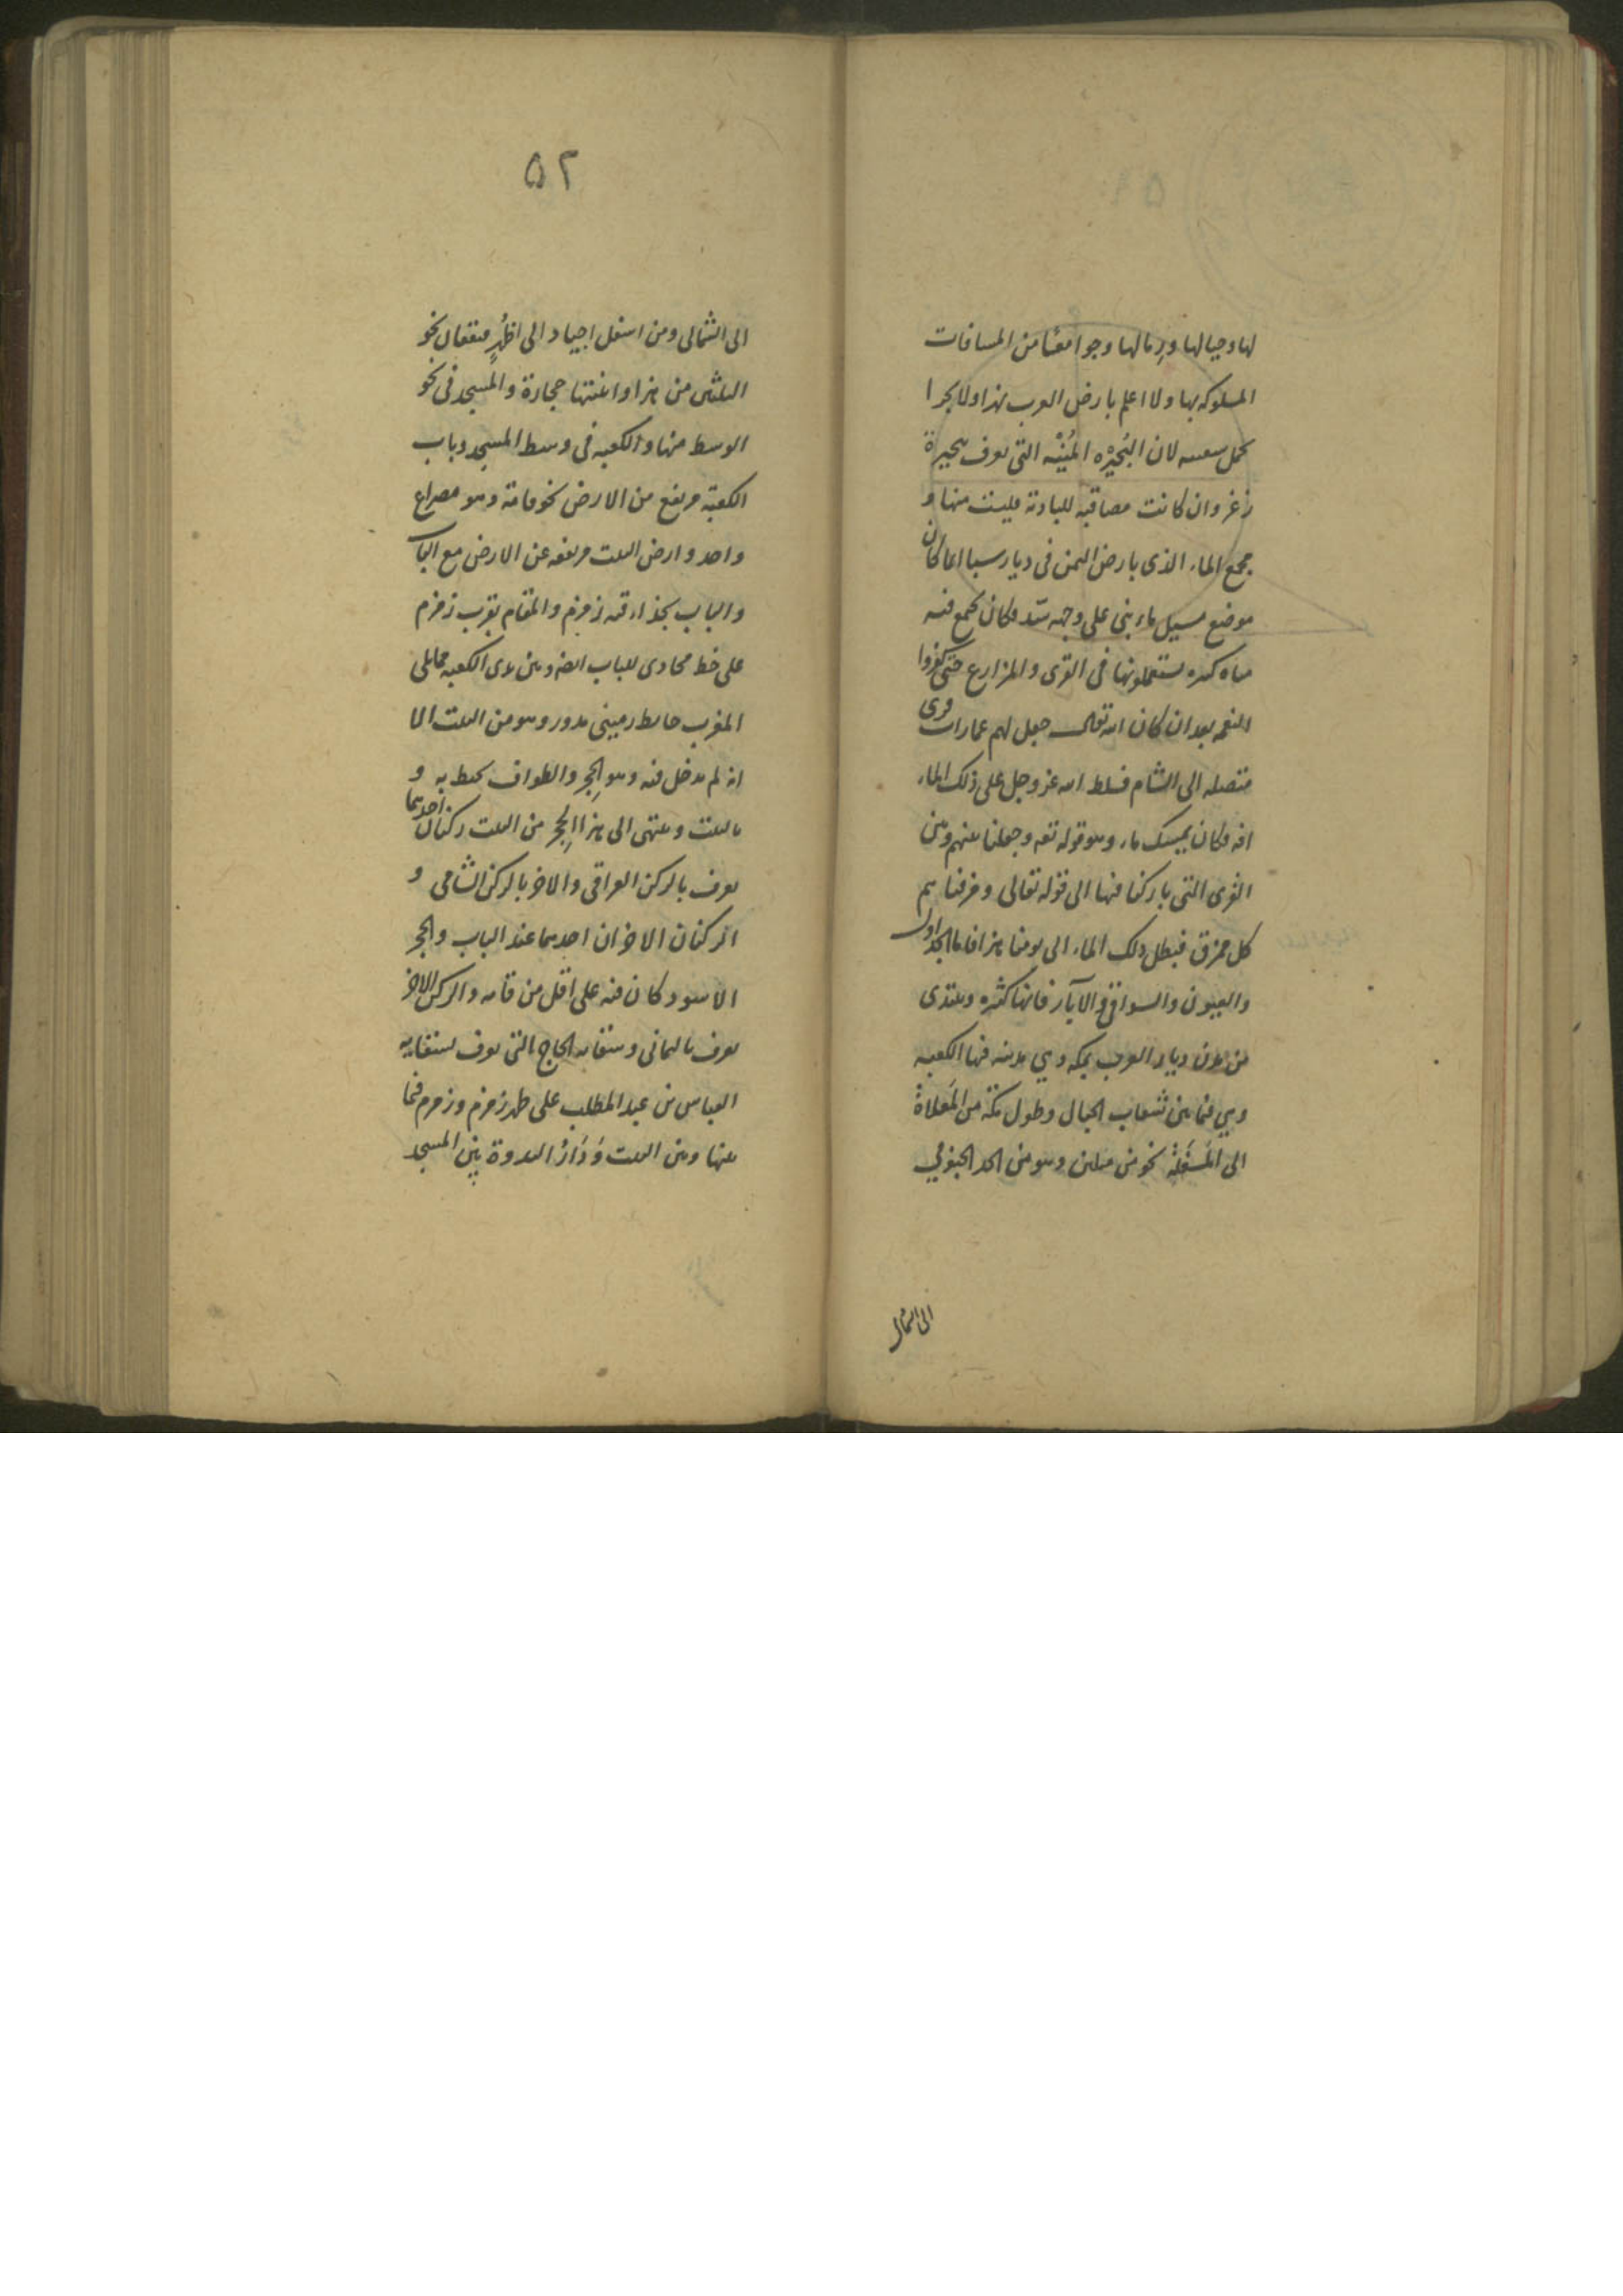 لها وجبالها ورمالها وجوامعنا من المسافات
المسلوكه بها ولا اعلم بارض العرب نهرا ولا بحرا
يحمل سفينه لان البُحَيْرَه المُيْتِنَه التي تعرف ببحيرة
زغر وان كانت مصاقبه للبادية فليست منها و
مجمع الماء الذى بارض اليمن فى ديار سبا انما كان
موضع مسيل ماء بنى على وجهه سدّ فكان يجمع فيه
مياه كثيره يستعملونها فى القرى والمزارع حتى كفروا
النعمه بعد ان كان الله تعالى جعل لهم عمارات قرى
متصله الى الشام فسلط الله عز وجل على ذلك الماء
افه فكان يمسك ماء وهو قوله تعه وجعلنا بينهم وبين
القرى التى باركنا فيها الى قوله تعالى ومزقناهم
كل ممزق فبطل ذلك الماء الى يومنا هذا فاما الجداول
والعيون والسواقى والآبار فانها كثيره ونبتدى
من مدن ديار العرب بمكه وهي مدينه فيها الكعبه
وهي فيما بين شعاب الجبال وطول مكة من المَعْلاة
الى المَسْفَلَة نحو من ميلين وهو من الحد الجنوبي
الى الشمال
۵۲
الى الشمالى ومن اسفل اجياد الى اظهر قعيقعان نحو
الثلثين من هذا وابنيتها حجارة والمسجد فى نحو
الوسط منها والكعبه فى وسط المسجد وباب
الكعبة مرتفع من الارض نحو قامة وهو مصراع
واحد وارض البيت مرتفعه عن الارض مع الباب
والباب بحذاء قبه زمزم والمقام بقرب زمزم
على خط محاذى للباب ايضا وبين يدى الكعبه مما يلى
المغرب حايط مبنى مدور وهو من البيت الا
انه لم يدخل فيه وهو الحِجر والطواف يحيط به و
بالبيت وينتهى الى هذا الحِجر من البيت ركنان احدهما
يعرف بالركن العراقى والاخر بالركن الشامى و
الركنان الاخران احدهما عند الباب والحجر
الاسود كان فيه على اقل من قامه والركن الاخر
يعرف باليمانى وسقايه الحاج التى تعرف بسقايه
العباس بن عبد المطلب على ظهر زمزم وزمزم فيما
بينها وبين البيت وَدَارُ الندوة بين المسجد